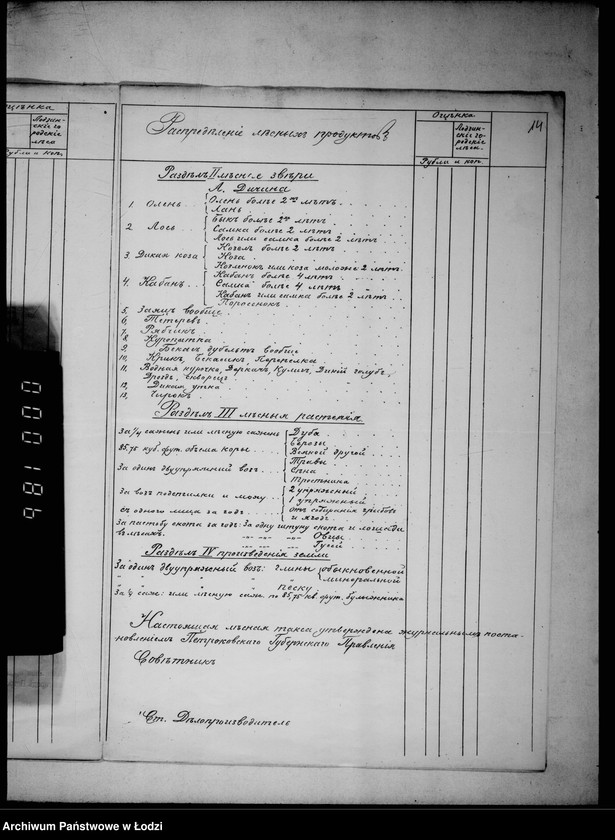 Оцѣнка
Лодзин-
скiе го-
родскiе
лѣса
Рубли и коп.
14
Распредѣленiе лѣсныхъ продуктовъ
Оцѣнка
Лодзин-
скiе го-
родскiе
лѣса.
Рубли и коп.
Раздѣлъ II лѣснiе звѣри
А. Дичина
1. Олень Олень болѣе 2хъ лѣтъ
Лань
2. Лось Быкъ болѣе 2хъ лѣтъ
Самка болѣе 2 лѣтъ
Лось или самка болѣе 2 лѣтъ
3. Дикая коза Козелъ болѣе 2 лѣтъ
Коза
Козленокъ или коза моложе 2 лѣтъ
4. Кабанъ Кабанъ болѣе 4 лѣтъ
Самка болѣе 4 лѣтъ
Кабанъ или самка болѣе 2 лѣтъ
Поросенокъ
5. Заяцъ вообще
6. Тетеревъ
7. Рябчикъ
8. Куропатка
9. Бекасъ дубельтъ вообще
10. Крикъ, Бекасикъ, Перепелка
11. Водная курочка, Деркачъ, Куликъ, Дикiй голубь
Дроздъ, скворецъ
12. Дикая утка
13. Чирокъ
Раздѣлъ III лѣсныя растенiя
За 1/4 сажень или лѣсную сажень Дуба
Березы
85,75 куб. фут. объема коры Всякой другой
За одинъ двуупряжный возъ Травы
Сѣна
Тростника
За возъ подстилки и моху 2 упряжный
1 упряжный
Съ одного лица за годъ отъ собиранiя грибовъ
и ягодъ
За пастьбу скота за годъ: За одну штуку скота и лошади
въ лѣсахъ. Овцы
Гусей
Раздѣлъ IV произведенiя земли
За одинъ двуупряжный возъ: глины обыкновенной
минеральной
" " " песку
За 1/4 саж: или лѣсную саж. по 85,75 кв. фут. булыжника
Настоящая лѣсная такса утверждена журнальнымъ поста-
новленiемъ Петроковскаго Губернскаго Правленiя
Совѣтникъ
Ст. Дѣлопроизводитель
981000
Archiwum Państwowe w Łodzi